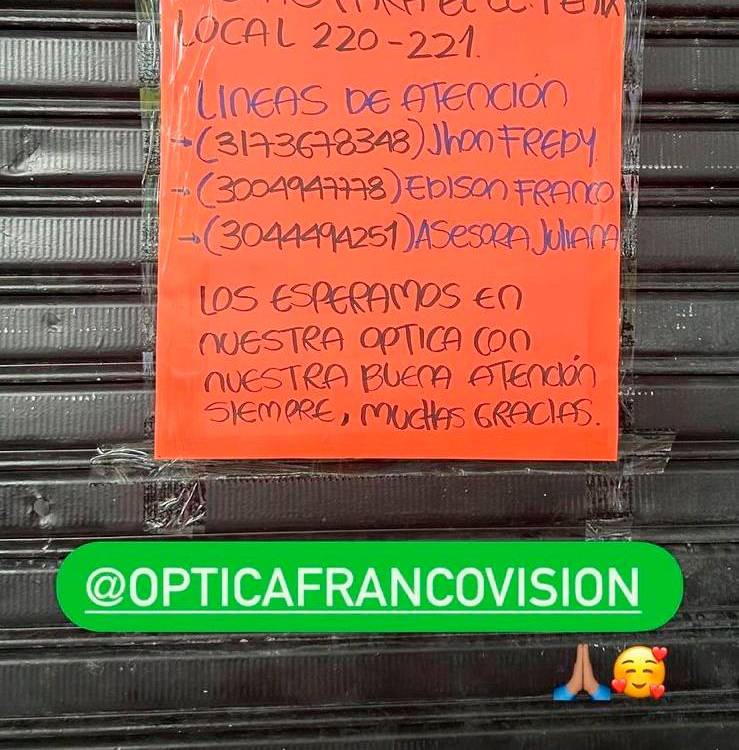 PARA EL C.C.
LOCAL 220-221.
LINEAS DE ATENCIÓN
→(3173678348) Jhon FREDY
→(3004947778) EDISON FRANCO
→(3044494251) ASESORA JULIANA
LOS ESPERAMOS EN
NUESTRA OPTICA CON
NUESTRA BUENA ATENCIÓN
SIEMPRE, MUCHAS GRACIAS.
@OPTICAFRANCOVISION